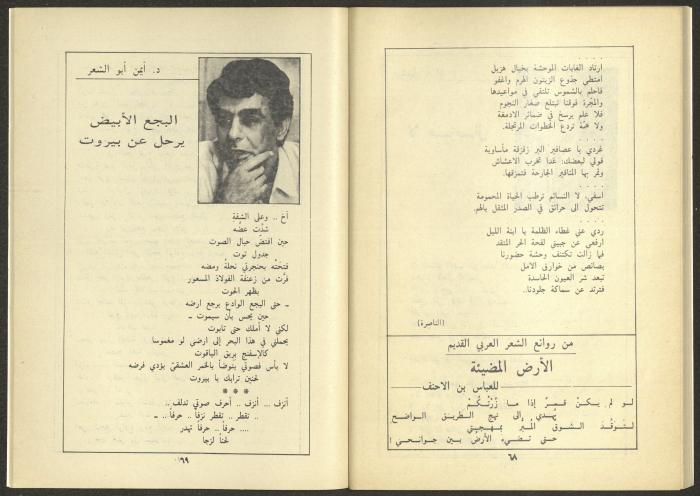 ارتاد الغابات الموحشة بخيال هزيل
امتطي جذوع الزيتون الهرم واغفو
فاحلم بالشموس تلتقي في مواعيدها
والمجرة فوقنا تبتلع صغار النجوم
فلا علم يرسخ في ضمائر الادمغة
ولا همّة تردع الخطوات المرتجلة.
. . . .
غردي يا عصافير البر زقزقة مأساوية
قولي لبعضك: غدا تخرب الاعشاش
وتمر بها المناقير الجارحة فتمزقها.
. . . .
اسفي، لا النسائم ترطب الحياة المحمومة
تتحول الى حرائق في الصدر المثقل بالهم.
. . . .
ردي عني غطاء الظلمة يا ابنة الليل
ارفعي عن جبيني لفحة الحر المتقد
فما زالت تكتنف وحشة حضورنا
بصائص من خوارق الامل
تبعد شر العيون الحاسدة
فترتد عن سماكة جلودنا..
(الناصرة)
من روائع الشعر العربي القديم
الأرض المضيئة
للعباس بن الاحنف
لو لم يكن قمرٌ إذا ما زُرْتُكُمْ
يَهدي إلى نهج الطريق الواضحِ
لتوقَّد الشوق المبر بمهجتي
حتى تضيءَ الأرضُ بين جوانحي!
٦٨
د. أيمن أبو الشعر
البجع الأبيض
يرحل عن بيروت
آخ .. وعلى الشفةِ
شدَّت عضّه
حين افتضّ حبال الصوت
جدول توت
فتحتْه بحنجرتي نحلةُ ومضه
فرَّت من زعنفة الفولاذ المسعور
بظهر الحوت
ـ حتى البجع الوادع يرجع ارضه
حين يحس بأن سيموت ـ
لكني لا أملك حتى تابوت
يحملني في هذا البحر إلى ارضي لو مغموسا
كالإسفنج بريق الياقوت
لا بأس فصوتي يتوضأ بالخمر العشقيّ يؤدي فرضه
لحنين ترابك يا بيروت
* * *
أنزف .. أنزف .. أحرف صوتي تدلف ..
.. تقطر .. تقطر نزفاً .. حرفاً .. ـ
.... حرفاً .. حرفاً تهدر
لحناً لزجا
٦٩